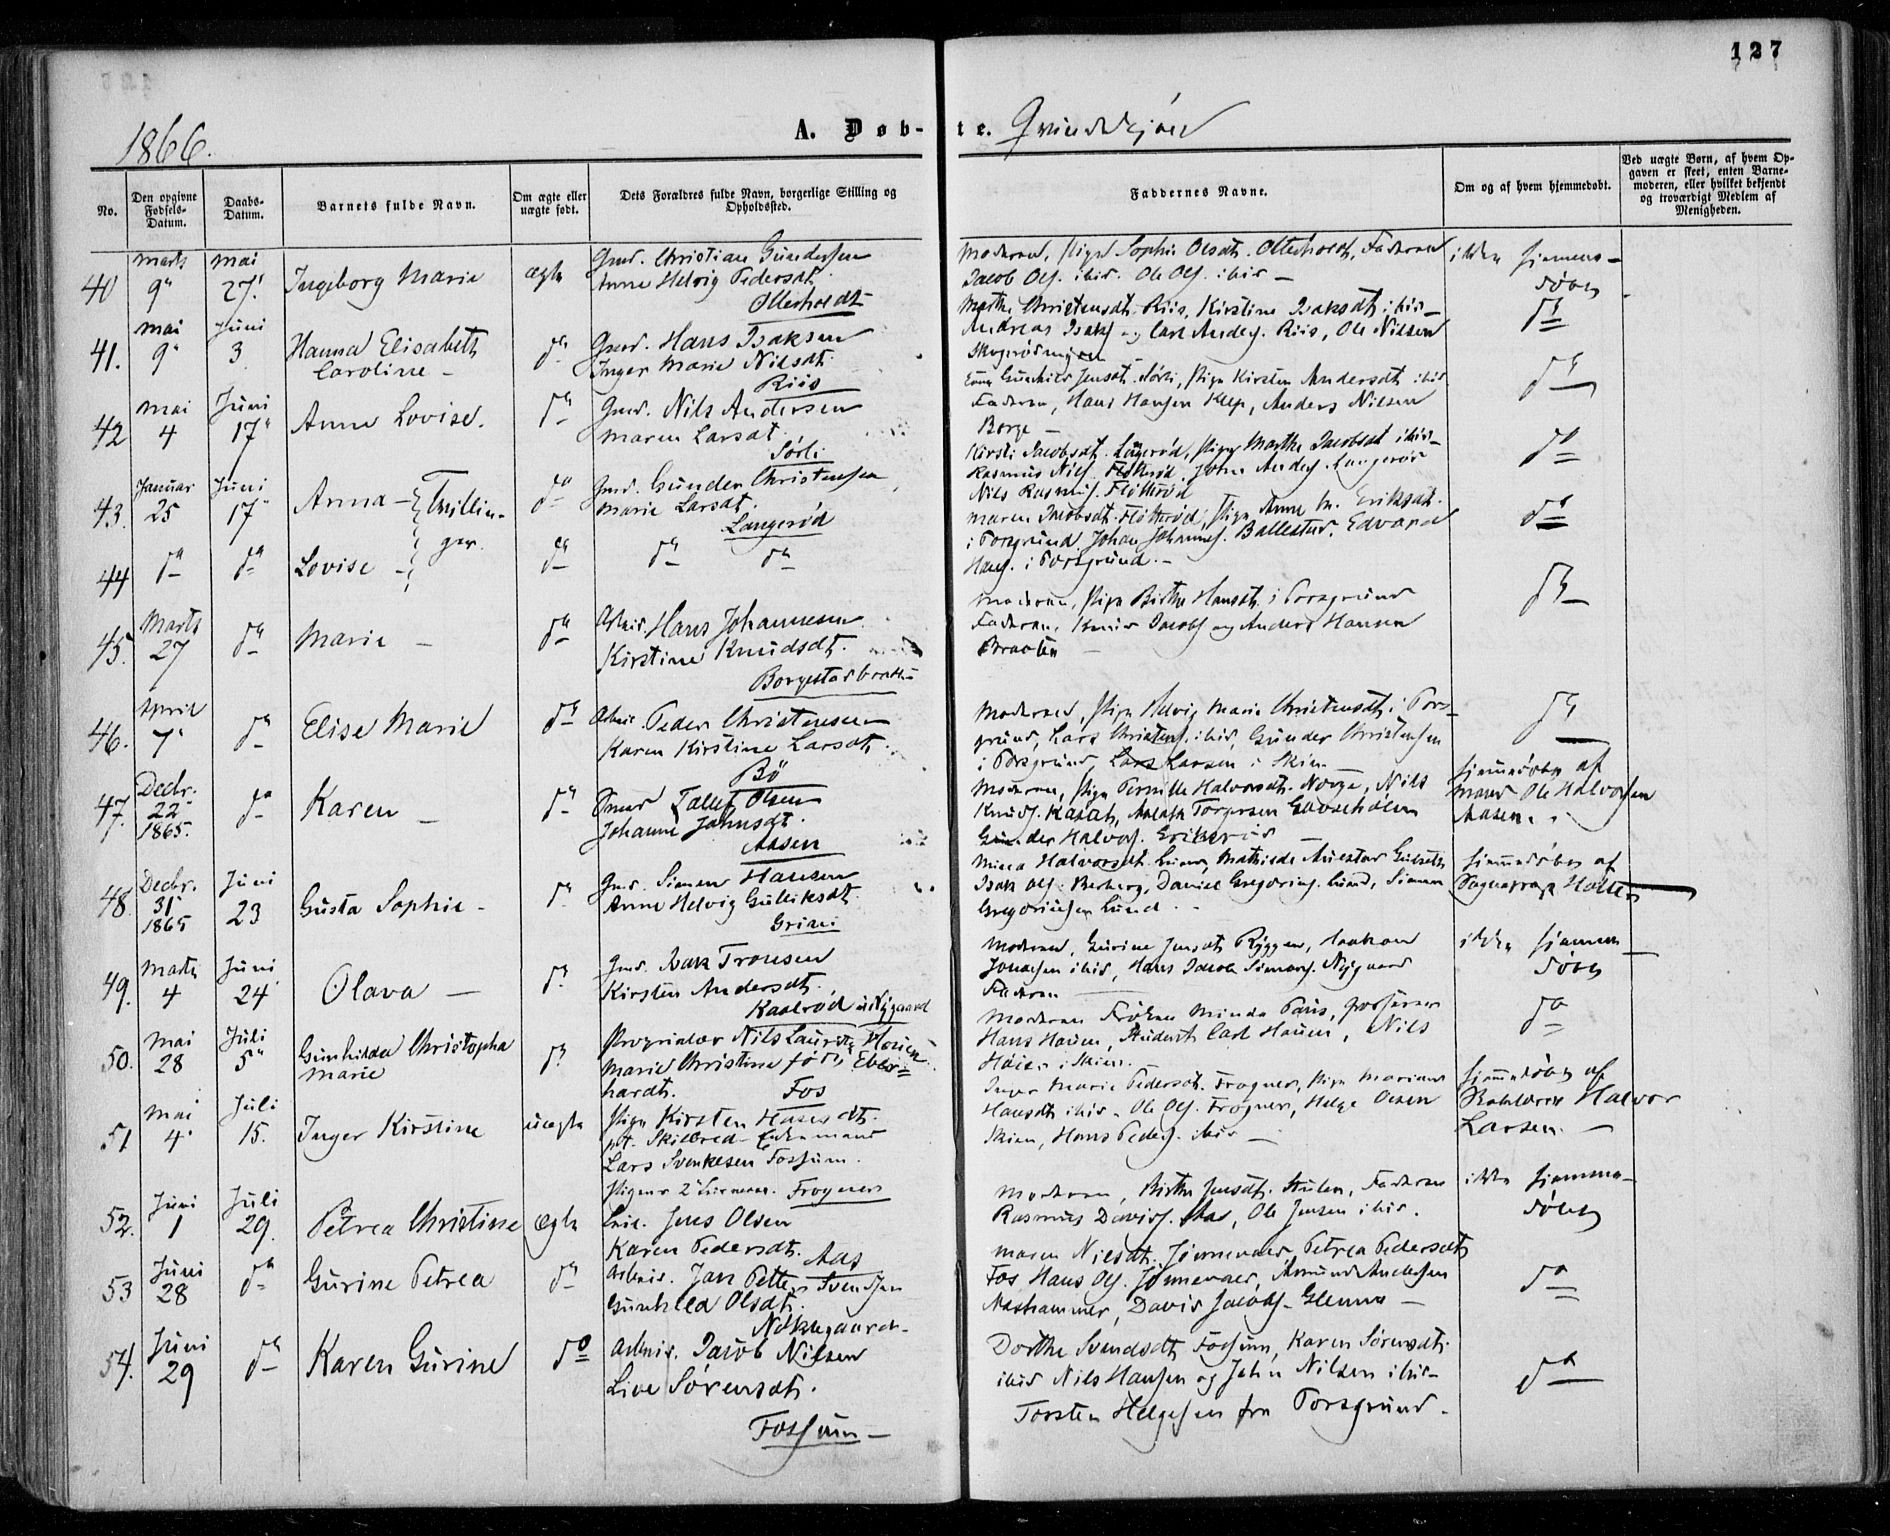 127
1866.
A. Døb-te. Qvindekjøn
No.
Den opgivne Fødsels-Datum.
Daabs-Datum.
Barnets fulde Navn.
Om ægte eller uægte født.
Dets Forældres fulde Navn, borgerlige Stilling og Opholdssted.
Faddernes Navne.
Om og af hvem hjemmedøbt.
Ved uægte Børn, af hvem Opgaven er skeet, enten Barnemoderen, eller hvilket bekjendt og troværdigt Medlem af Menigheden.
40 Marts 9 Mai 27. Ingeborg Marie ægte
Gmd. Christian Gundersen
Anne Helvig Pedersdt.
Otterholdt
Moderen, Pige Sophie Olsdt. Otterholdt, Faderen
Jacob Ols. ibid. Ole Ols. ibid. —
ikke hjemme-
døbt
41. Mai 9 Juni 3 Hanna Elisabeth
Caroline – do
Gmd. Hans Isaksen
Inger Marie Nilsdt.
Riis
Marthe Christensdt. Riis, Kirstine Isaksdt. ibid –
Andreas Isaks. og Carl Anders. Riis, Ole Nilsen
do
42 Mai 4 Juni 17 Anne Lovise. do
Gmd. Nils Andersen
Maren Larsdt.
Sørli
Gunhild Jensdt. Sørli, Pige Kirsten Andersdt. ibid
Faderen, Hans Hansen Klep, Anders Nilsen
Borge –
do
43. Januar 25 Juni 17 Anna – Tvillin-
ger. do
Gmd. Gunder Christensen
Marie Larsdt.
Langerød
Kirsti Jacobsdt. Langerød, Pige Marthe Jacobsdt. ibid –
Rasmus Nils. Fløtterød, John Anders. Langerød
Nils Rasmus. Fløtterød
do
44 do do Lovise – do do do
Maren Jacobsdt. Fløtterød, Pige Anne M. Eriksdt.
i Porsgrund. Johan Johannes. Ballestad, Edvard
Hans. i Porsgrund. –
do
45. Marts 27 do Marie – do
Arbeid. Hans Johannesen
Kirstine Knudsdt.
Borgestadbraaten
Moderen, Pige Birthe Hansdt. i Porsgrund
Faderen, Knud Jacobs. og Anders Hansen
Braaten
do
46. April 7 do Elise Marie do
Arbeid. Peder Christensen
Karen Kirstine Larsdt.
Bö
Moderen, Pige Helvig Marie Christensdt. i Pors-
grund, Lars Christens. ibid, Gunder Christensen
i Porsgrund, Lars Larsen i Skien
do
47. Decbr. 22 1865. do Karen – do
Smed Tallef Olsen
Johanne Johnsdt.
Aasen
Moderen, Pige Pernille Halvorsdt. Norge, Nils
Knuds. Torgersen
Gunder Halvors.
hjemmedøbt af
Ole Halvorsen
Aasen.
48. Decbr. 31 1865 Juni 23 Gusta Sophie – do
Gmd. Simen Hansen
Anne Helvig Gulliksdt.
Grini
Halvorsdt. Lund, Mathilde
Isak Ols. Berberg, Daniel Gregorius. Lund, Simen
Gregoriusen Lund
hjemmedøbt af
Sogneprest Holter
49. Marts 4 Juni 24 Olava – do
Gmd. Isak Tronsen
Kirsten Andersdt.
Kaalrød u. Nygaard
Moderen, Gurine Jensdt. Ryggen, Haakon
Jonassen ibid, Hans Jacob Simens. Nygaard
Faderen
ikke hjemme
døbt
50. Mai 28 Juli 5 Gunhilda Christopha
Marie do
Proprietær Nils Lauritz Houen
Marie Christine født Eber-
hardt. Fos
Moderen Frøken Minda Paus, Grosserer
Hans Houen, Student Carl Houen, Nils
Høier i Skien.
do
51 Mai 4 Juli 15. Inger Kirstine uægte
Pige Kirsten Hansdt.
pt. Skilbred – Enkemand
Lars Svenkesen Fossum.
Pigens 2 Leiermaal. Frogner
Inger Marie Pedersdt. Frogner, Pige Mariane
Hansdt. ibid – Ole Ols. Frogner, Helge Olsen
Skien, Hans Peders. ibid –
hjemmedøbt af
Skolelærer Halvor
Larsen. –
52. Juni 1 Juli 29. Petrea Christine ægte
Jens Olsen
Karen Pedersdt.
Aas
Moderen, Birthe Jensdt. Stulen, Faderen
Rasmus Davids. Aas, Ole Jensen ibid.
ikke hjemme-
døbt
53 Juni 28 do Gurine Petrea do
Arbeid. Jan Petter Svendsen
Gunhild Olsdt.
Maren Nilsdt. Jønnevald, Petrea Pedersdt.
Fos Hans Ols. Jønnevald, Amund Andersen
Nashammer, David Jacobs. Glenna –
do
54. Juni 29 do Karen Gurine do
Arbeid. Jacob Nilsen
Live Sørensdt.
Fossum –
Dorthe Svendsdt. Fossum, Karen Sørensdt.
ibid Nils Hansen og John Nilsen ibid –
Torsten Helgesen fra Porsgrund.
do